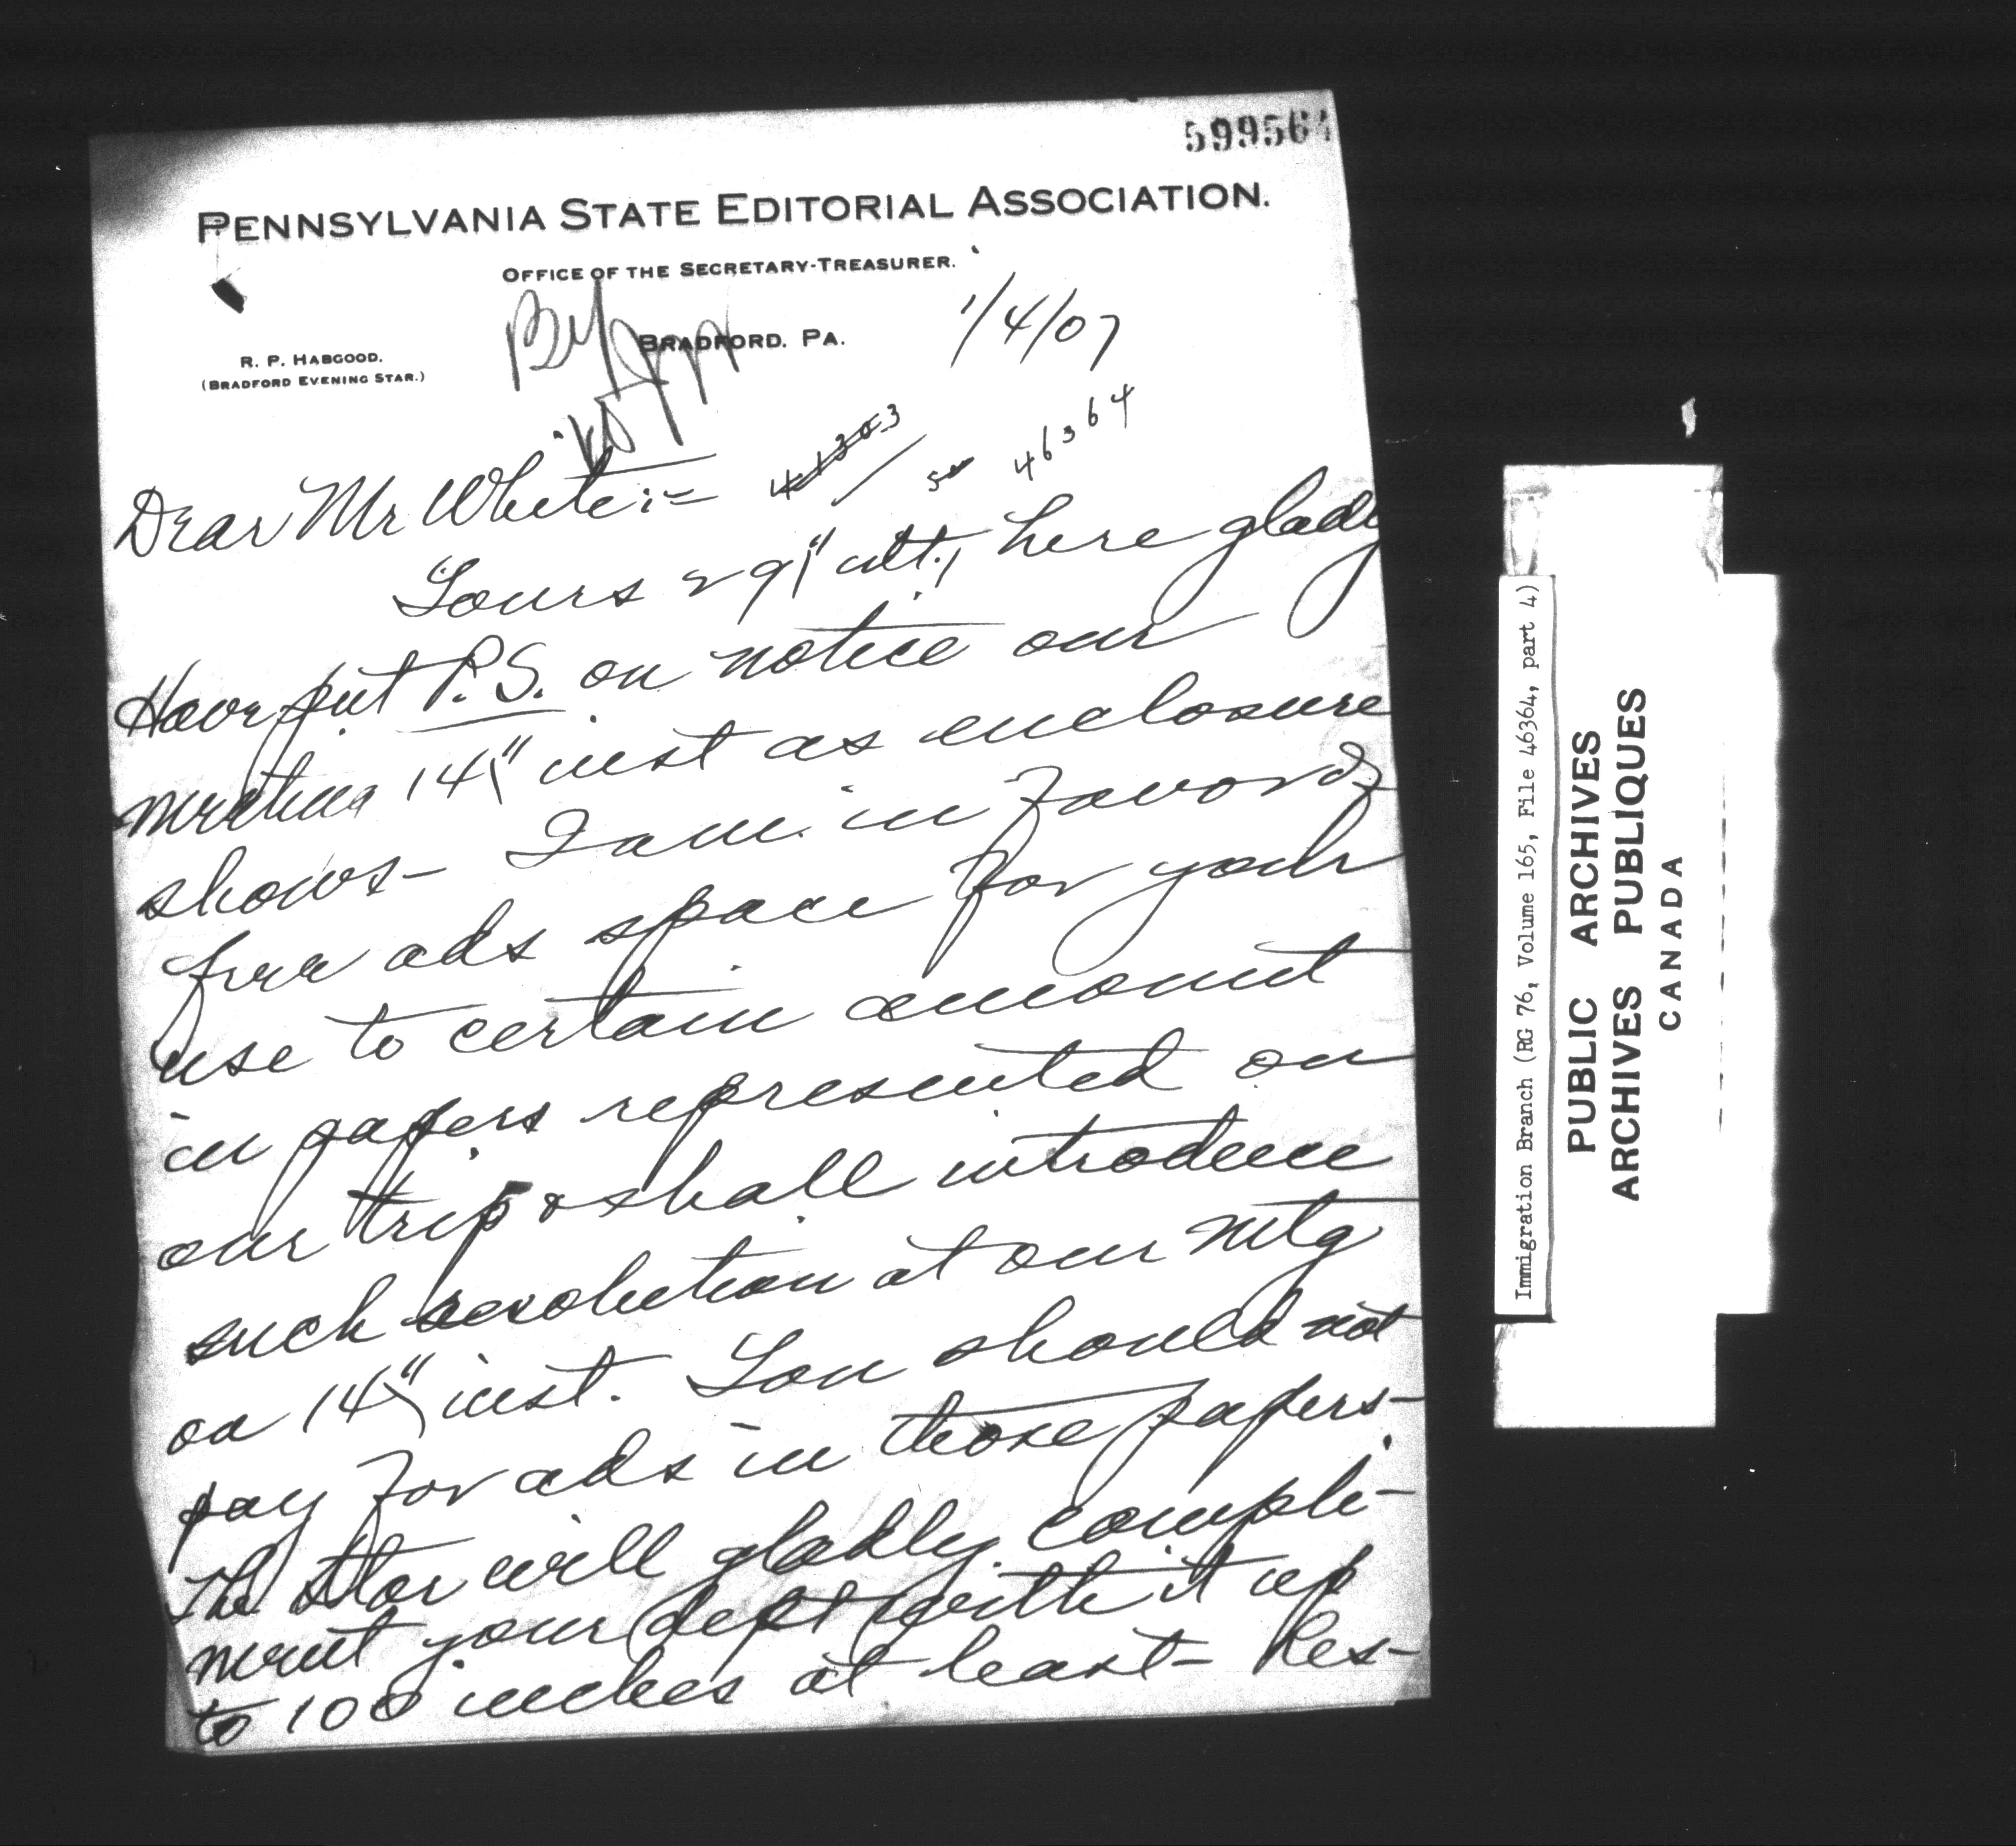 599564
PENNSYLVANIA STATE EDITORIAL ASSOCIATION.
OFFICE OF THE SECRETARY-TREASURER.
BRADFORD, PA.
1/4/07
R. P. HABGOOD.
(BRADFORD EVENING STAR.)
46364
Dear Mr White:-
Yours 29" ult., here glady
Have put P.S. on notice our
meeting 14" inst as enclosure
shows- I am in favor of
free ads space for your
use to certain amount
in papers represented on
our trip & shall introduce
such resolution at our mtg
on 14" inst. You should not
pay for ads in those papers-
The Star will gladly compli-
ment your dept with it up
to 100 inches at least- Res-
Immigration Branch (RG 76, Volume 165, File 46364, part 4)
PUBLIC ARCHIVES
ARCHIVES PUBLIQUES
CANADA